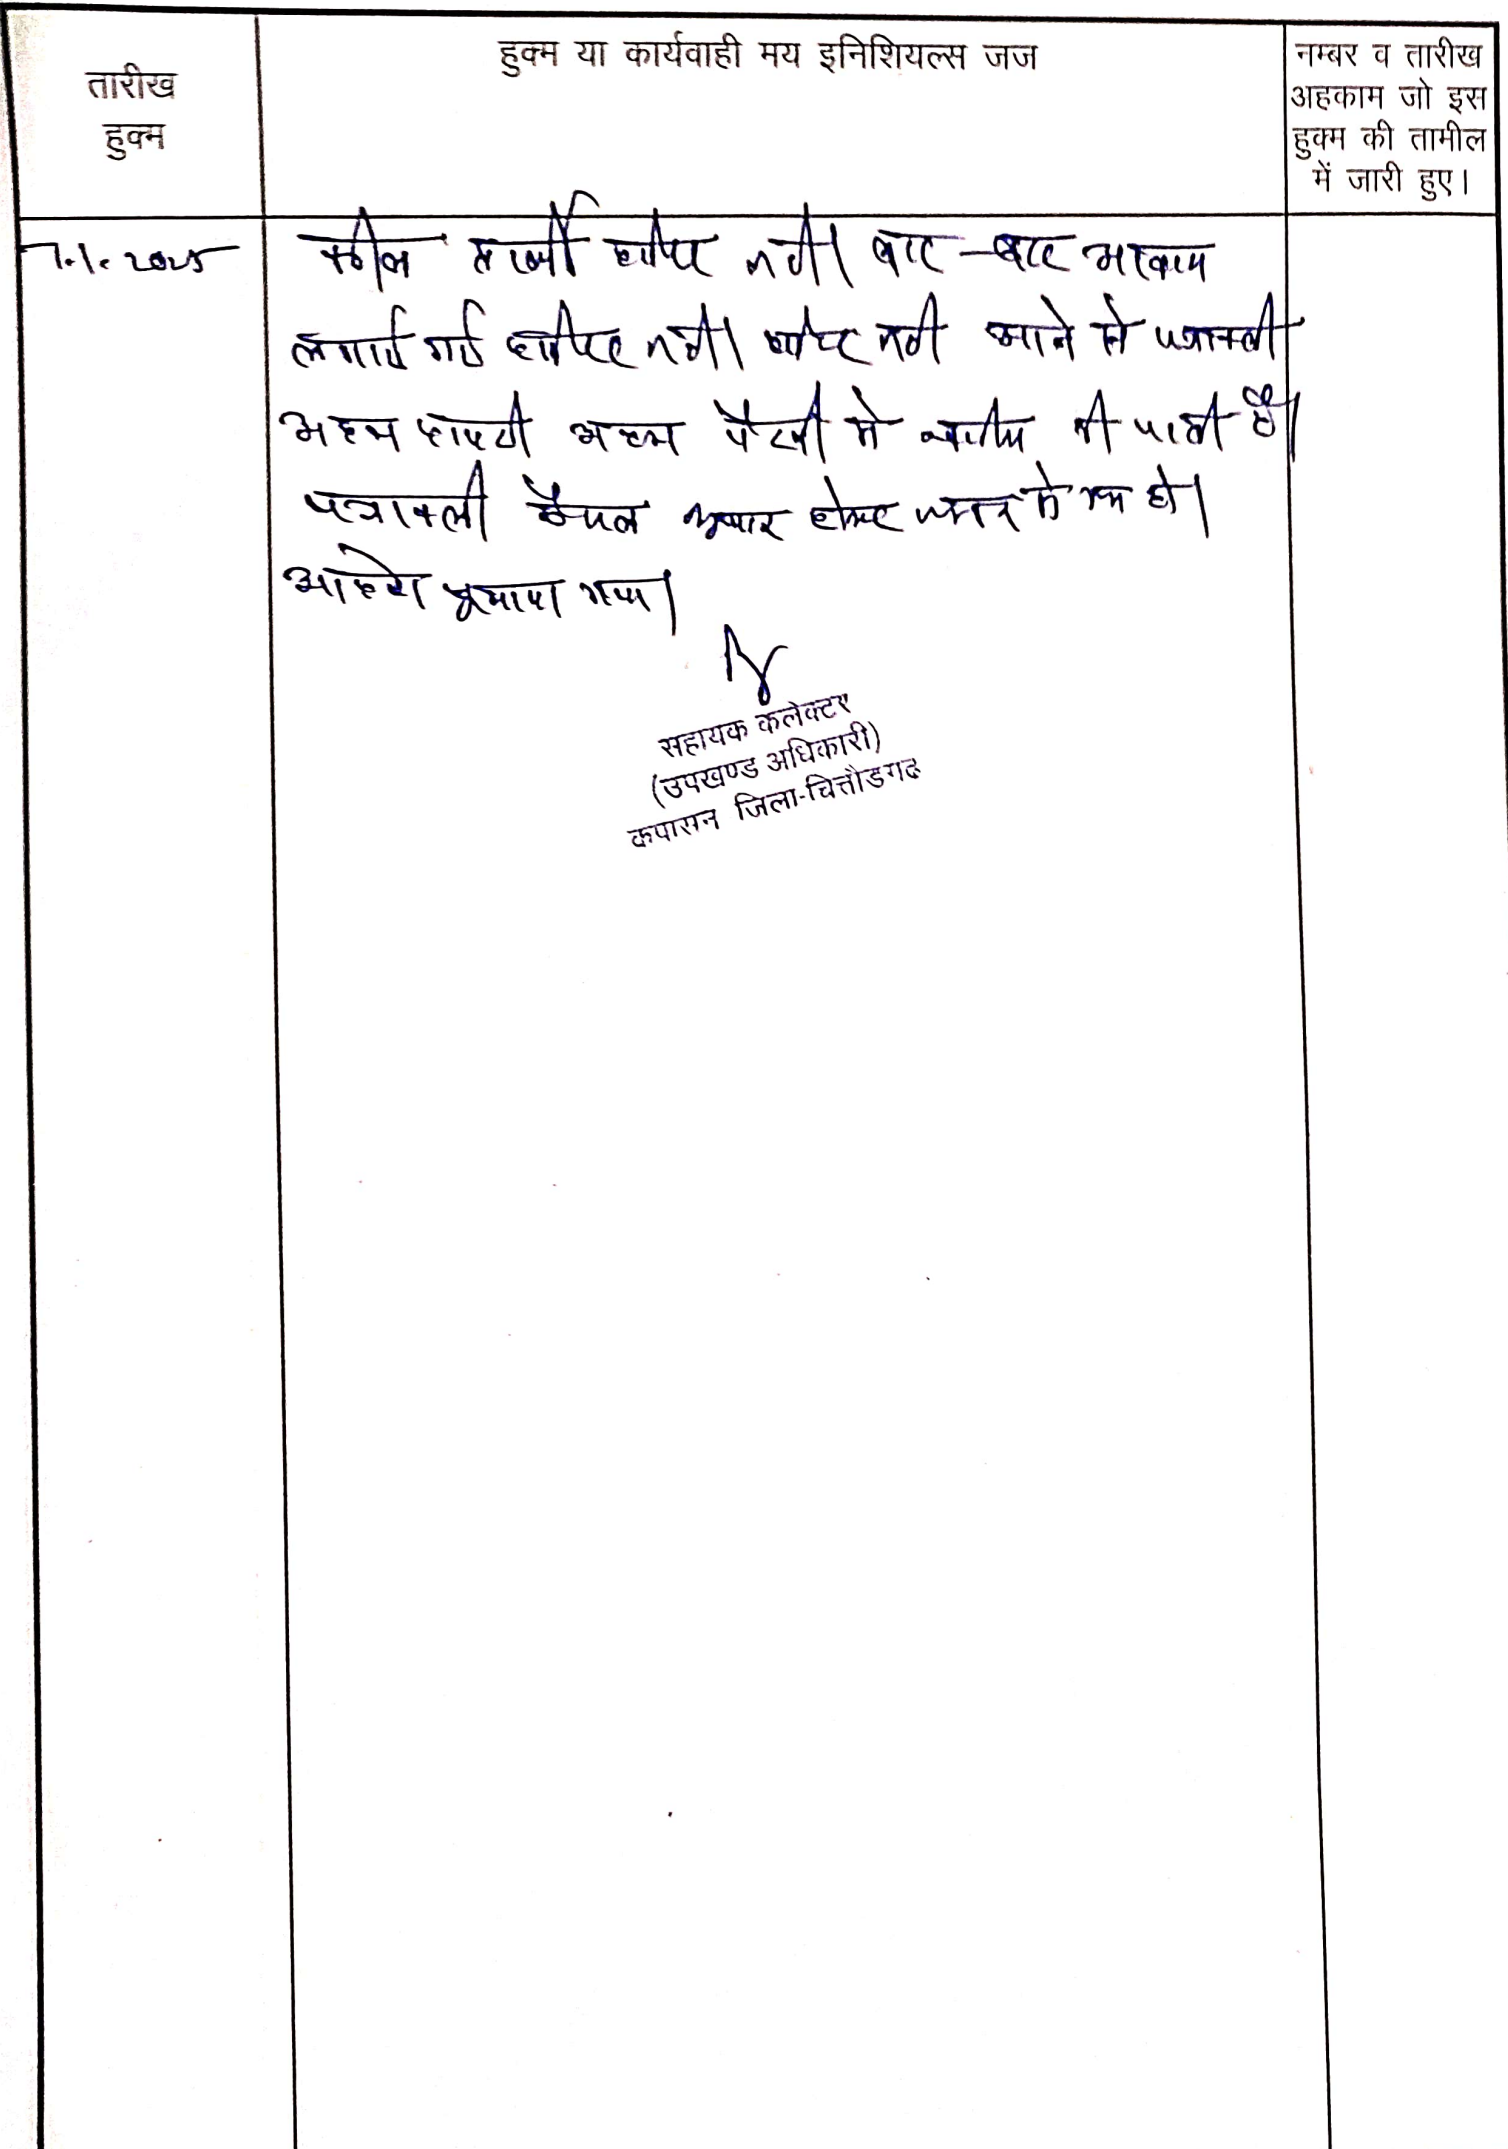 तारीख
हुक्म
हुक्म या कार्यवाही मय इनिशियल्स जज
नम्बर व तारीख
अहकाम जो इस
हुक्म की तामील
में जारी हुए।
7.1.2025
वकील प्रार्थी हाजिर नही। बार-बार आवाज
लगाई गई हाजिर नही। हाजिर नही आने से पत्रावली
अदम हाजरी अदम पैरवी मे खारीज की जाती है।
पत्रावली फैसल शुमार होकर दफ्तर हो।
आदेश सुनाया गया।
सहायक कलेक्टर
(उपखण्ड अधिकारी)
कपासन जिला-चित्तौडगढ